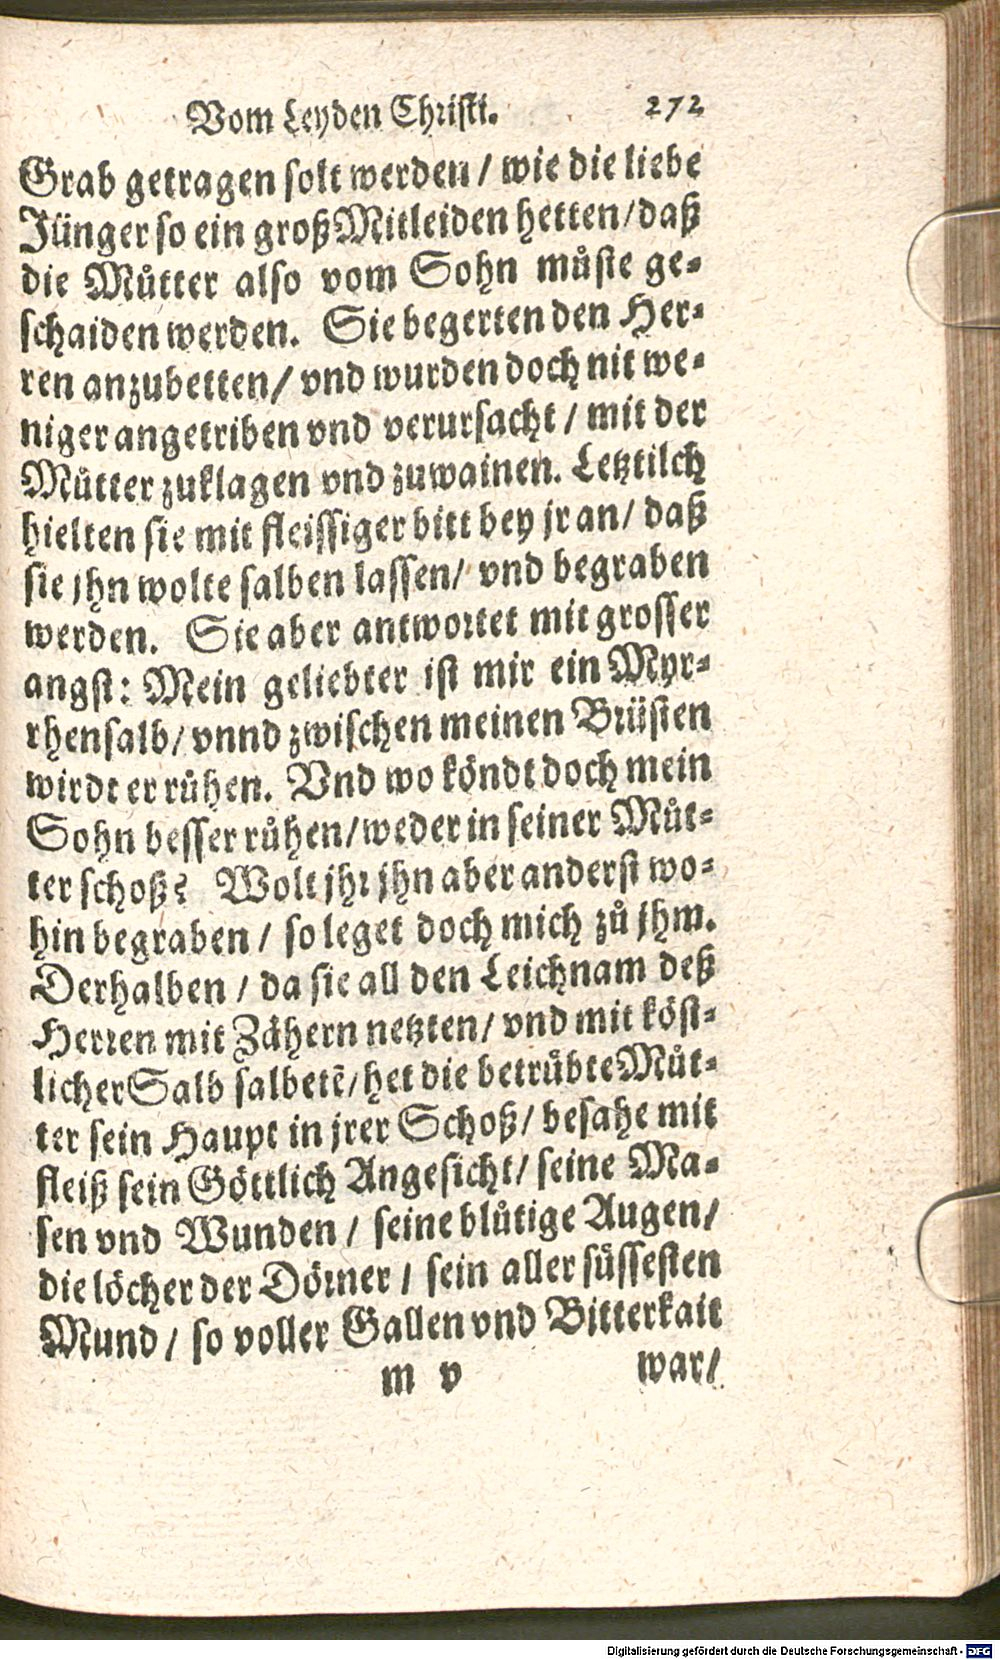 Vom Leyden Christi. 272
Grab getragen solt werden / wie die liebe
Jünger so ein groß Mitleiden hetten / daß
die Můtter also vom Sohn můste ge-
schaiden werden. Sie begerten den Her-
ren anzubetten / vnd wurden doch nit we-
niger angetriben vnd verursacht / mit der
Můtter zuklagen vnd zuwainen. Letztilch
hielten sie mit fleissiger bitt bey jr an / daß
sie jhn wolte salben lassen / vnd begraben
werden. Sie aber antwortet mit grosser
angst: Mein geliebter ist mir ein Myr-
rhensalb / vnnd zwischen meinen Brüsten
wirdt er růhen. Vnd wo köndt doch mein
Sohn besser růhen / weder in seiner Můt-
ter schoß? Wolt jhr jhn aber anderst wo-
hin begraben / so leget doch mich zů jhm.
Derhalben / da sie all den Leichnam deß
Herren mit Zähern netzten / vnd mit köst-
licher Salb salbetē / het die betrůbte Můt-
ter sein Haupt in jrer Schoß / besahe mit
fleiß sein Göttlich Angesicht / seine Ma-
sen vnd Wunden / seine blůtige Augen /
die löcher der Dörner / sein aller süssesten
Mund / so voller Gallen vnd Bitterkait
m v war /
Digitalisierung gefördert durch die Deutsche Forschungsgemeinschaft - DFG